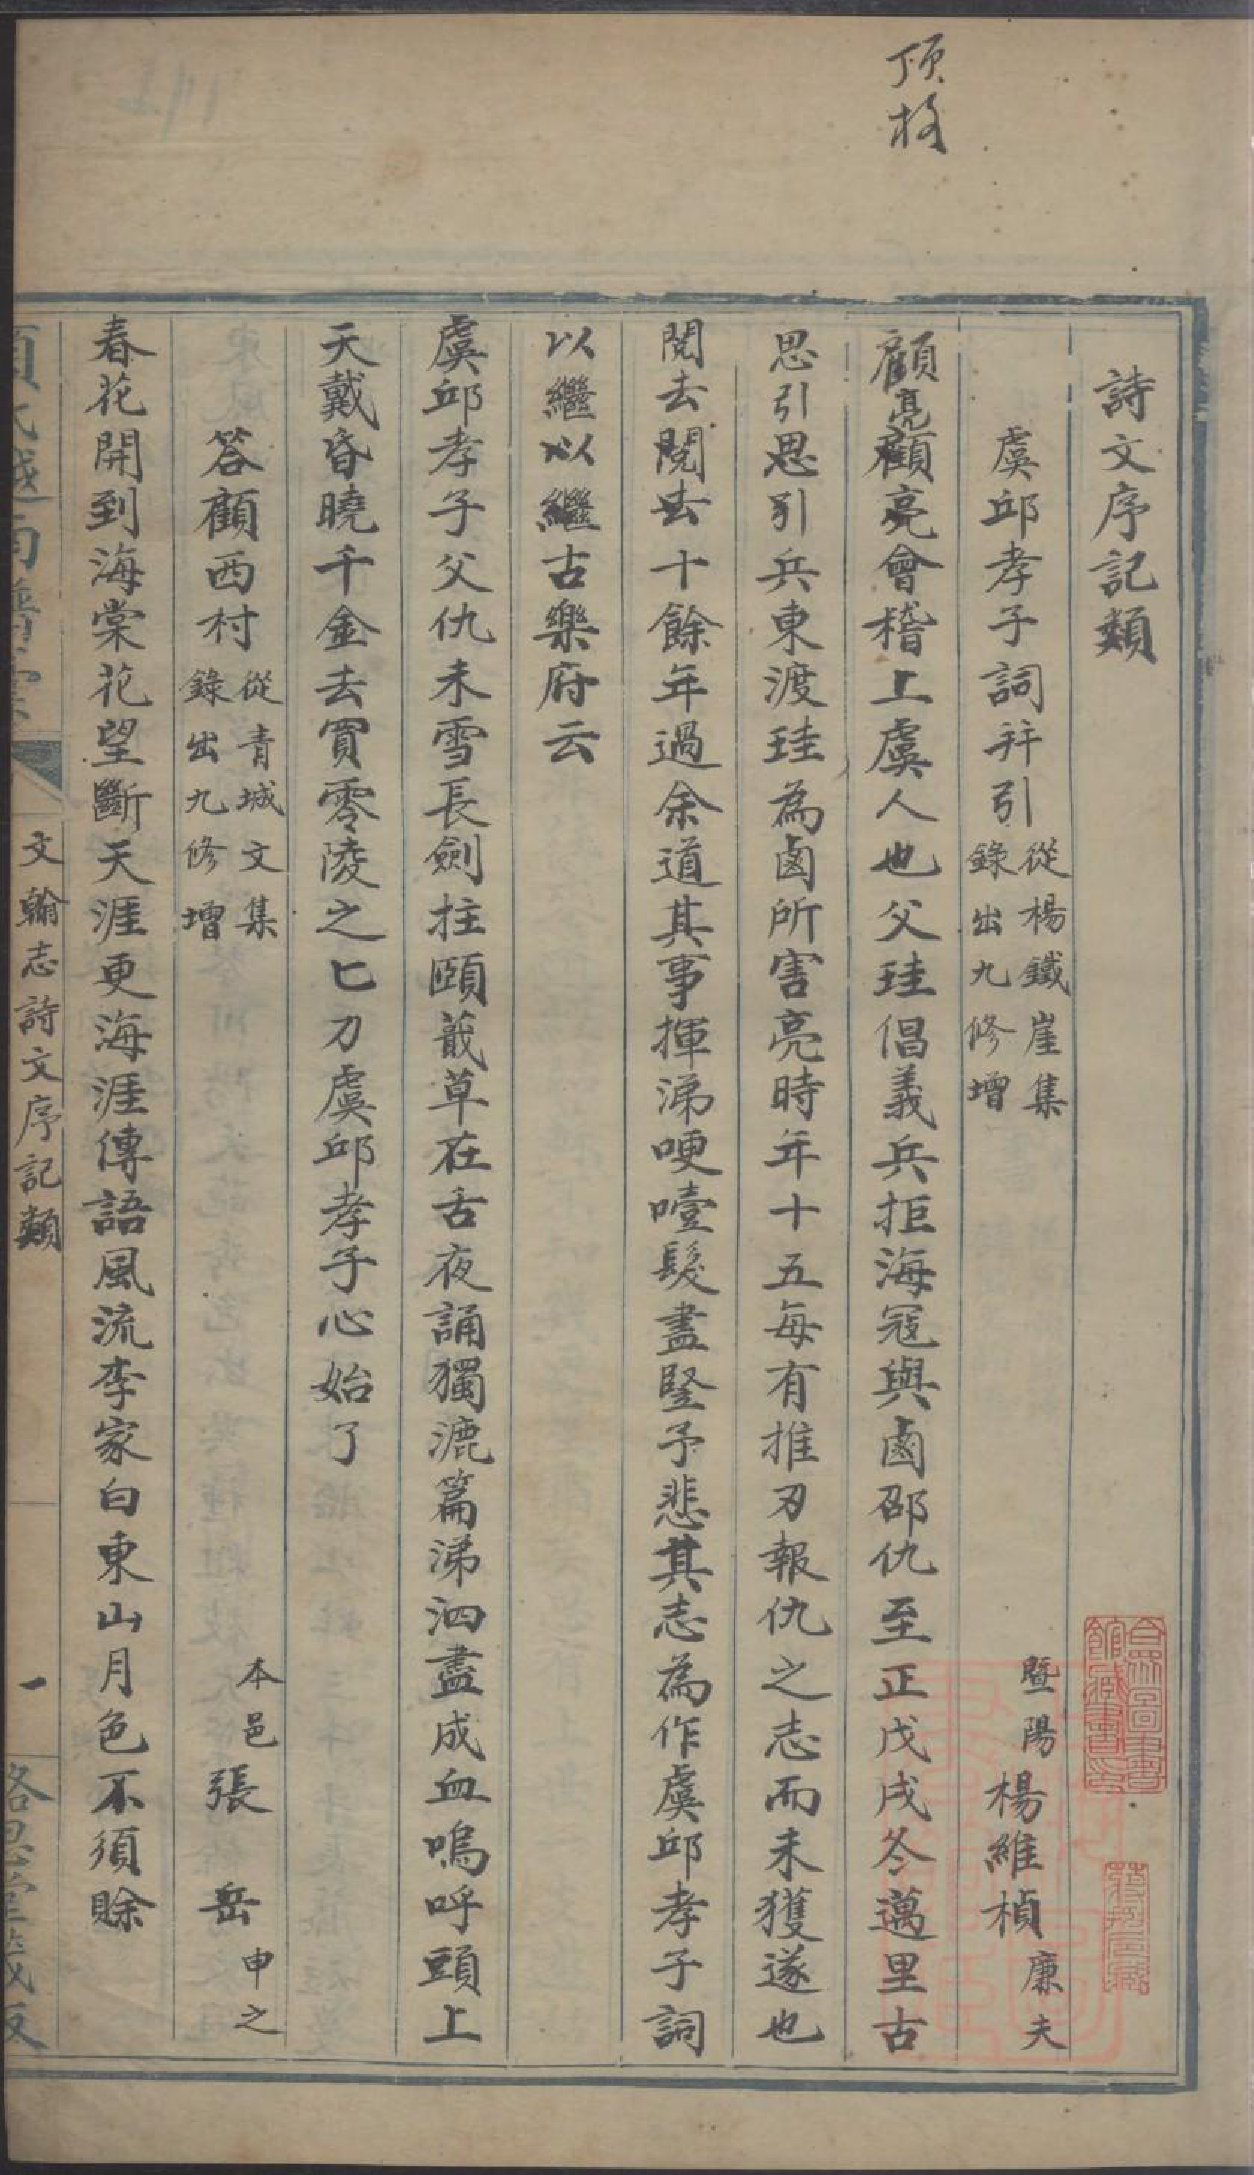 頂格
詩文序記類
虞邱孝子詞并引 從楊鐵崖集錄出九修增 暨陽楊維楨廉夫
顧亮顧亮會稽上虞人也父珪倡義兵拒海寇與鹵邵仇至正戊戌冬邁里古
思引思引兵東渡珪為鹵所害亮時年十五每有推刃報仇之志而未獲遂也
閱去閱去十餘年過余道其事揮涕哽噎髮盡竪予悲其志為作虞邱孝子詞
以繼以繼古樂府云
虞邱孝子父仇未雪長劍拄頤蕺草在舌夜誦獨漉篇涕泗盡成血嗚呼頭上
天戴昏曉千金去買零陵之匕刀虞邱孝子心始了
答顧西村 從青城文集錄出九修增 本邑張岳申之
春花開到海棠花望斷天涯更海涯傳語風流李家白東山月色不須賒
文翰志詩文序記類
一